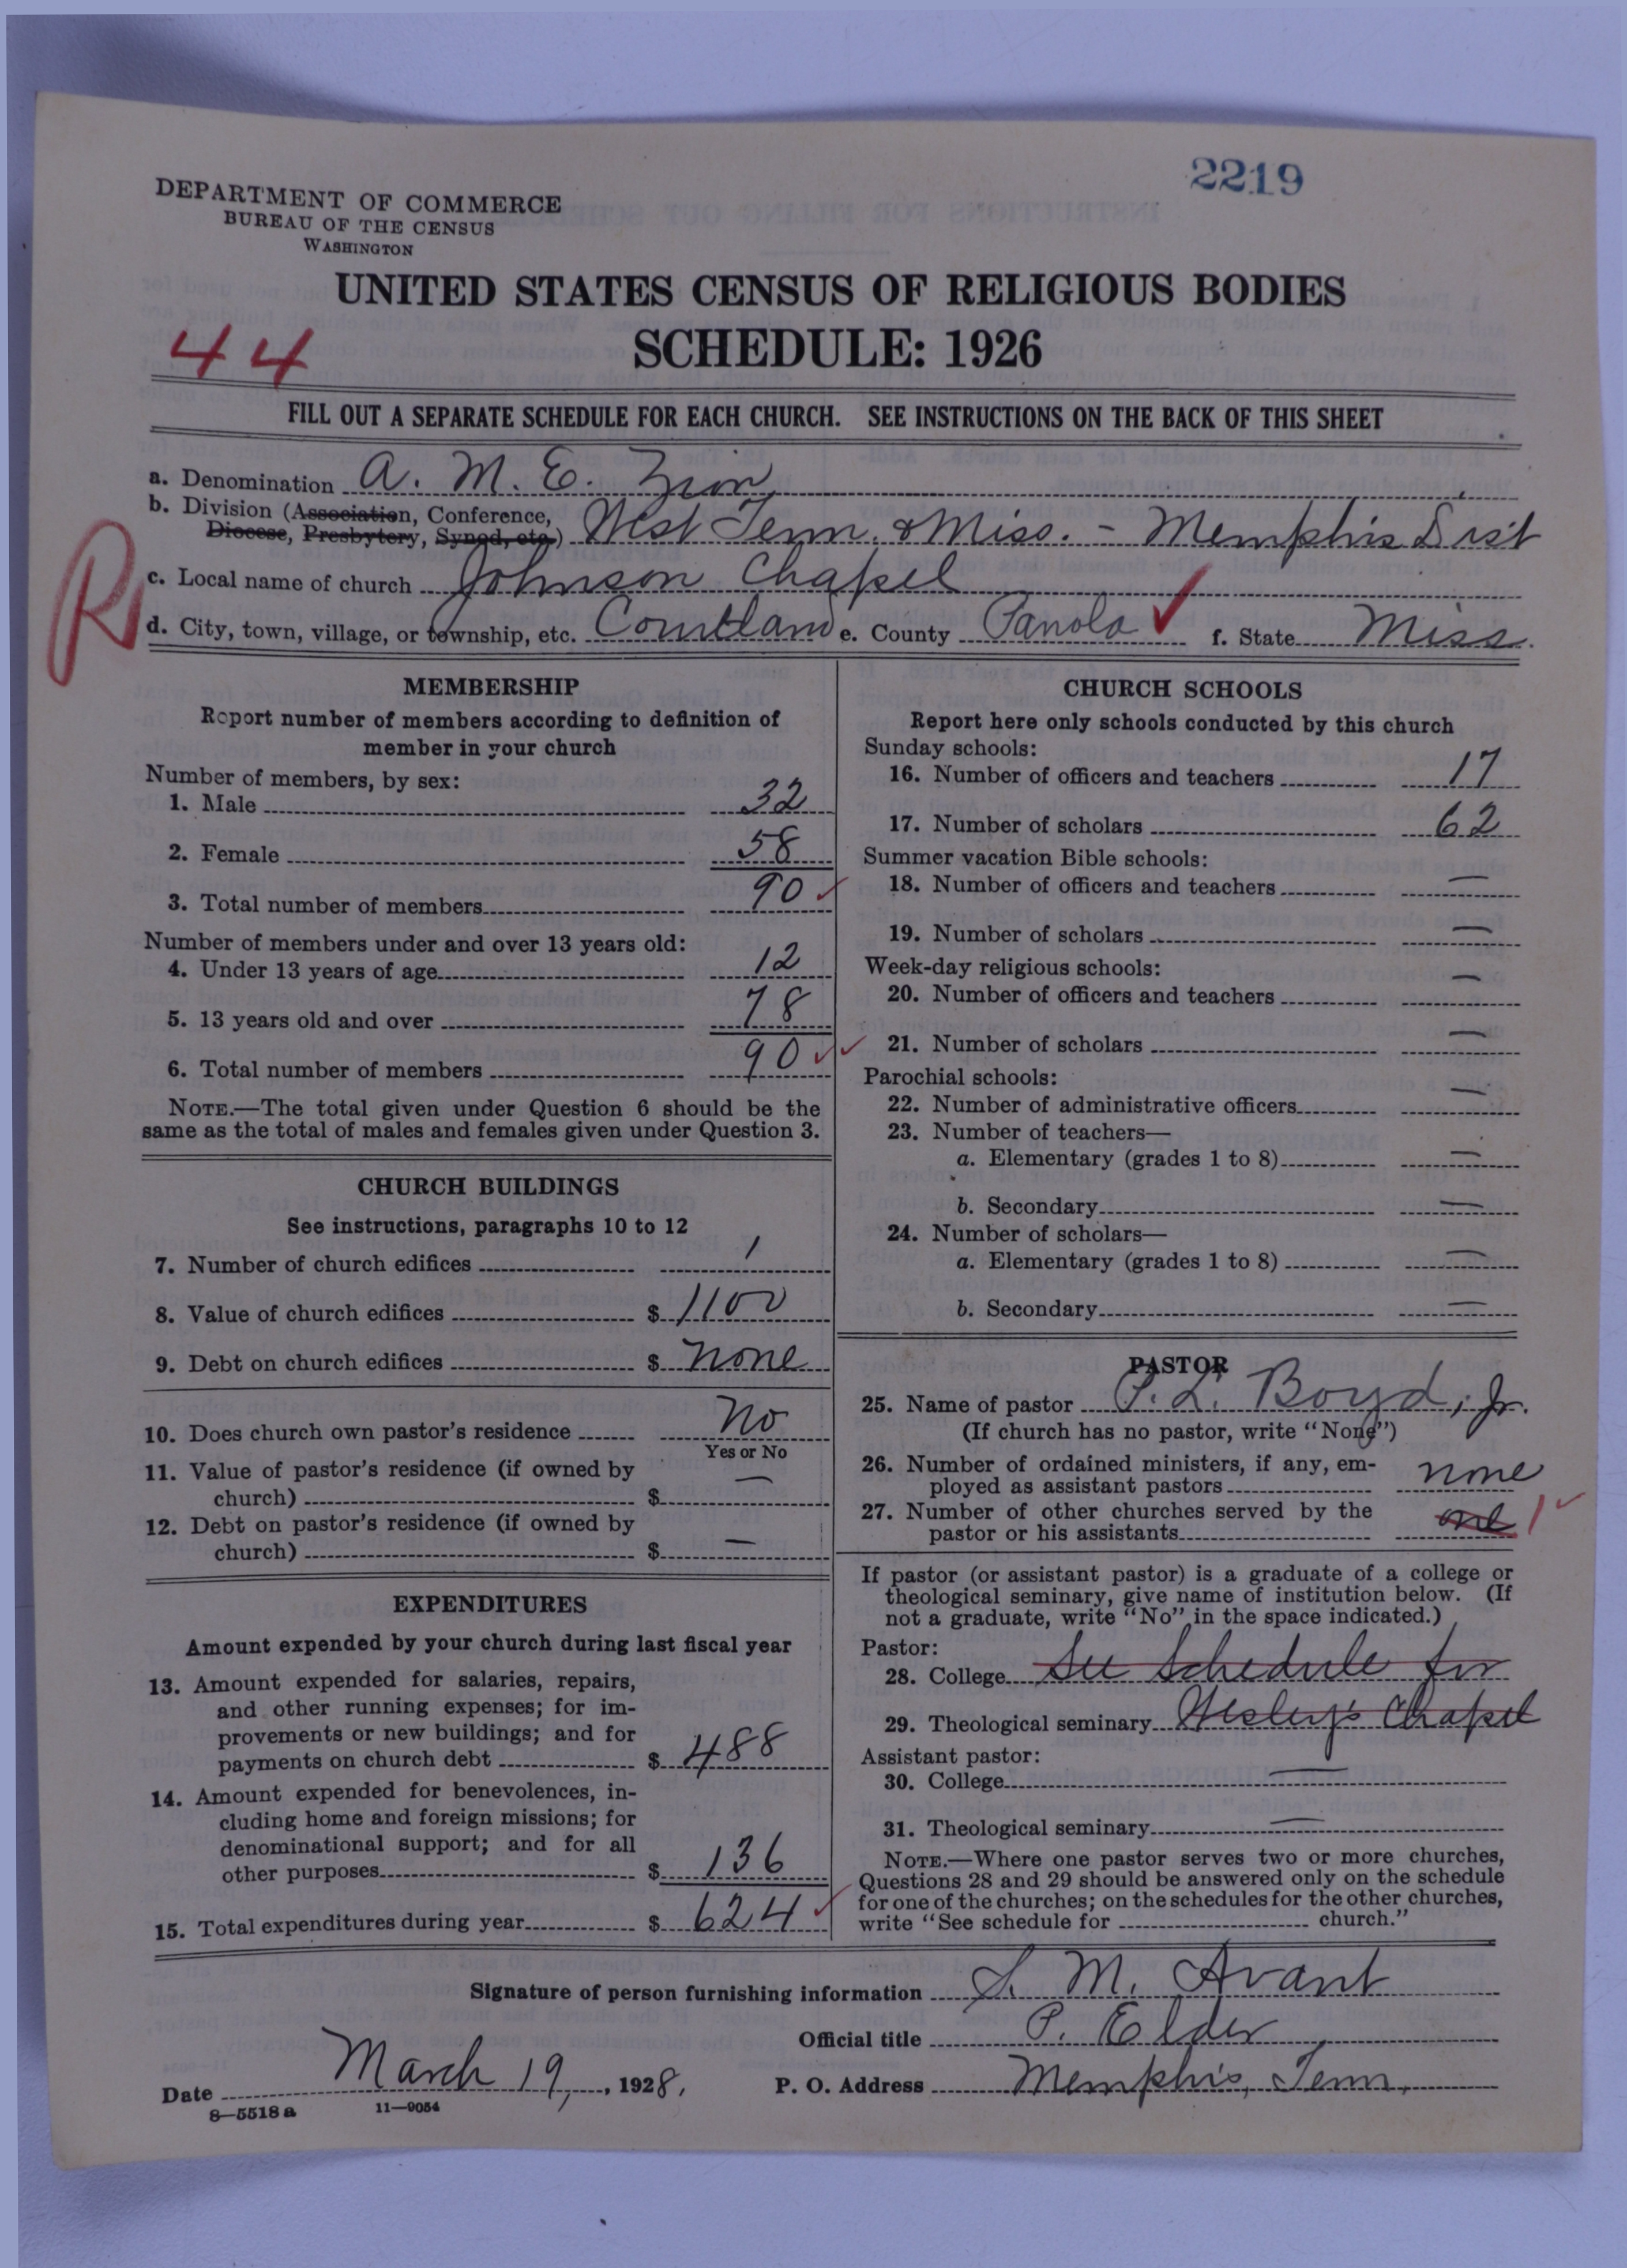 2219
DEPARTMENT OF COMMERCE
BUREAU OF THE CENSUS
WASHINGTON
UNITED STATES CENSUS OF RELIGIOUS BODIES
44
SCHEDULE: 1926
FILL OUT A SEPARATE SCHEDULE FOR EACH CHURCH. SEE INSTRUCTIONS ON THE BACK OF THIS SHEET
a. Denomination A. M. E. Zion
b. Division (Association, Conference,
Diocese, Presbytery, Synod, etc.) West Tenn. & Miss. - Memphis Dist
R
c. Local name of church Johnson Chapel
d. City, town, village, or township, etc. Courtland e. County Panola ✓ f. State Miss.
MEMBERSHIP
Report number of members according to definition of
member in your church
Number of members, by sex:
1. Male 32
2. Female 58
3. Total number of members 90 ✓
Number of members under and over 13 years old:
4. Under 13 years of age 12
5. 13 years old and over 78
6. Total number of members 90 ✓✓
NOTE.—The total given under Question 6 should be the
same as the total of males and females given under Question 3.
CHURCH BUILDINGS
See instructions, paragraphs 10 to 12
7. Number of church edifices 1
8. Value of church edifices $ 1100
9. Debt on church edifices $ none
10. Does church own pastor's residence No
Yes or No
11. Value of pastor's residence (if owned by
church) $ —
12. Debt on pastor's residence (if owned by
church) $ —
EXPENDITURES
Amount expended by your church during last fiscal year
13. Amount expended for salaries, repairs,
and other running expenses; for im-
provements or new buildings; and for
payments on church debt $ 488
14. Amount expended for benevolences, in-
cluding home and foreign missions; for
denominational support; and for all
other purposes $ 136
15. Total expenditures during year $ 624 ✓
CHURCH SCHOOLS
Report here only schools conducted by this church
Sunday schools:
16. Number of officers and teachers 17
17. Number of scholars 62
Summer vacation Bible schools:
18. Number of officers and teachers —
19. Number of scholars —
Week-day religious schools:
20. Number of officers and teachers —
21. Number of scholars —
Parochial schools:
22. Number of administrative officers —
23. Number of teachers—
a. Elementary (grades 1 to 8) —
b. Secondary —
24. Number of scholars—
a. Elementary (grades 1 to 8) —
b. Secondary —
PASTOR
25. Name of pastor P. L. Boyd, Jr.
(If church has no pastor, write "None")
26. Number of ordained ministers, if any, em-
ployed as assistant pastors none
27. Number of other churches served by the
pastor or his assistants one 1 ✓
If pastor (or assistant pastor) is a graduate of a college or
theological seminary, give name of institution below. (If
not a graduate, write "No" in the space indicated.)
Pastor:
28. College See Schedule for
29. Theological seminary Wesley's Chapel
Assistant pastor:
30. College —
31. Theological seminary —
NOTE.—Where one pastor serves two or more churches,
Questions 28 and 29 should be answered only on the schedule
for one of the churches; on the schedules for the other churches,
write "See schedule for church."
Signature of person furnishing information S. M. Avant
Official title P. Elder
Date March 19, 1928. P. O. Address Memphis, Tenn.
8—5518 a 11—9054